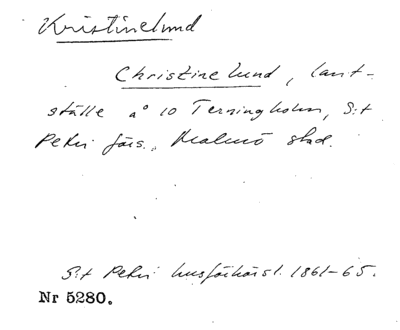 Kristinelund
Christinelund, lant-
ställe a° 10 Terningholm, S:t
Petri förs., Malmö stad.
S:t Petri husförhörsl. 1861-65.
Nr 5280.